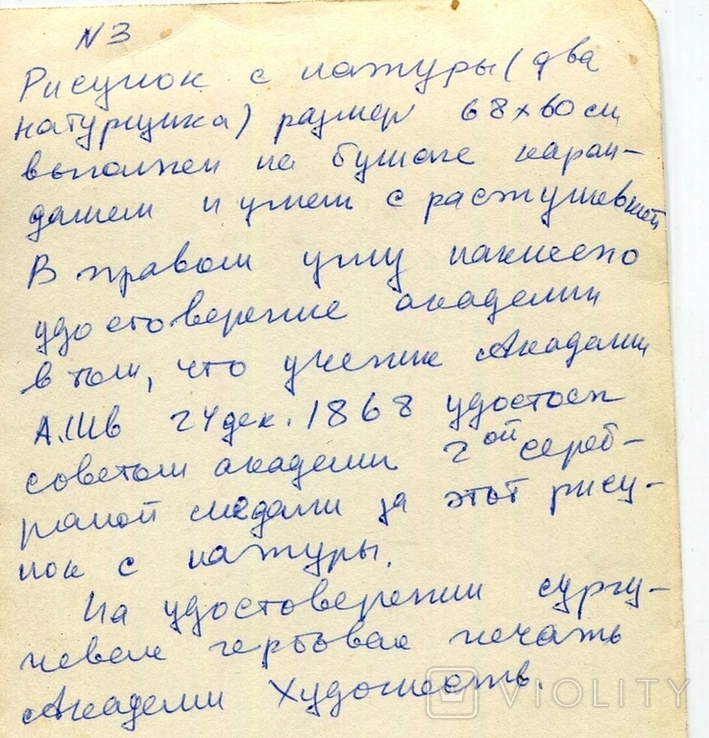 N 3
Рисунок с натуры (два
натурщика) размер 68x60 см
выполнен на бумаге каран-
дашем и углем с растушевкой
В правом углу наклеено
удостоверение академии
в том, что ученик Академии
А.Шв 24 дек. 1868 удостоен
советом академии 2ой сереб-
ряной медали за этот рису-
нок с натуры.
На удостоверении сургу-
чевая гербовая печать
Академии Художеств.
VIOLITY